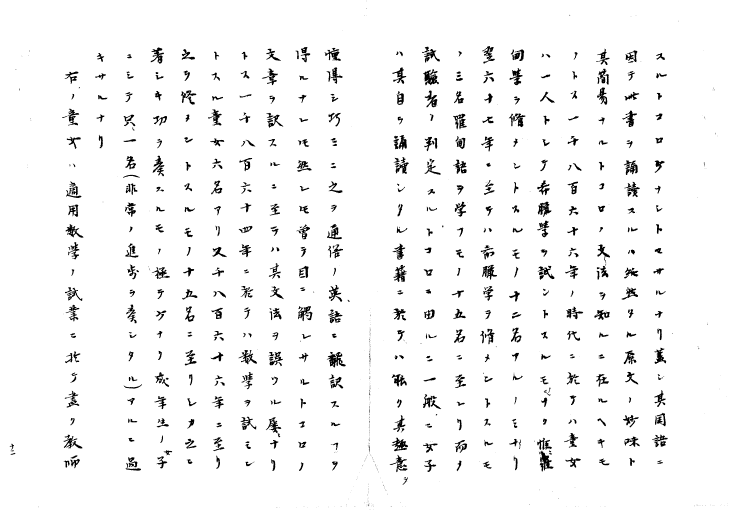 スルトコロヲナントマサルナリ蓋シ其国語ニ
因テ此書ヲ誦読スルハ純然タル原文ノ妙味ト
其簡易ナルトコロノ文法ヲ知ルニ在ルヘキモ
ノトス一千八百六十六年ノ時代ニ於テハ童女
ハ一人トシテ希臘学ヲ試ントスルモノナク惟羅
甸学ヲ脩メントスルモノ十二名アルノミナリ
翌六十七年ニ至テハ希臘学ヲ脩メントスルモ
ノ三名羅甸語ヲ学フモノ十五名ニ至レリ而シテ
試験者ノ判定スルトコロニ由ルニ一般ニ女子
ハ其自ラ誦読シタル書籍ニ於テハ能ク其趣意ヲ
憧得シ巧ミニ之ヲ通俗ノ英語ニ翻訳スルヿヲ
得ルナレ𪜈然レ𪜈曽テ目ニ触レサルトコロノ
文章ヲ訳スルニ至テハ其文法ヲ誤ツル屡ナリ
トス一千八百六十四年ニ於テハ数学ヲ試ミン
トスル童女六名アリ又千八百六十六年ニ至リ
之ヲ修メントスルモノ十五名ニ至リシカ之ニ
著シキ功ヲ奏スルモノ極テ少ナリ成年生ノ女子
ニシテ只一名(非常ノ進歩ヲ奏シタル)アルニ過
キサルナリ
右ノ童女ハ適用数学ノ試業ニ於テ尽ク教師
十二